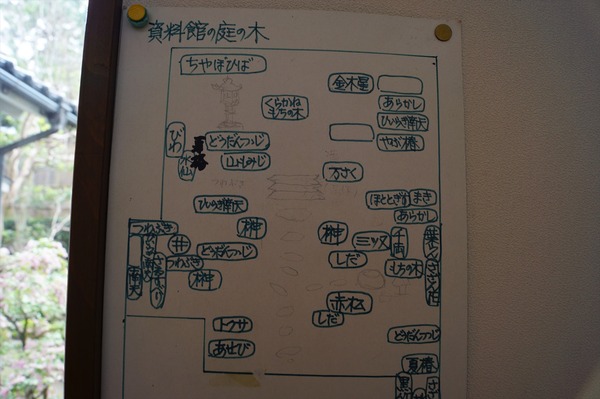 資料館の庭の木
ちゃぼひば
金木犀
くらかね
もちの木
あらかし
ひいらぎ南天
やぶ椿
びわ
夏椿
どうだんつつじ
山もみじ
万さく
ひいらぎ南天
ほととぎす
まき
あらかし
つわぶき
榊
榊
三ツ又
千両
井
どうだんつつじ
しだ
つわぶき
榊
もちの木
南天
赤松
しだ
トクサ
あせび
どうだんつつじ
夏椿